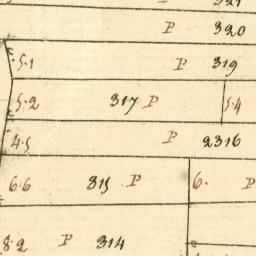 321
P 320
5.1 P 319
5.2 317 P 5.4
4.5 P 2316
6.6 315 P 6. P
8.2 P 314